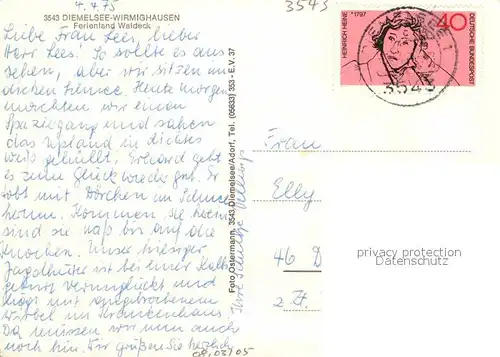 4.4.75
3543
3543 DIEMELSEE-WIRMIGHAUSEN
Ferienland Waldeck
Liebe Frau Lees, lieber
Herr Lees! So sollte es aus
sehen, aber wir sitzen im
dicken Schnee. Heute morgen
machten wir einen
Spaziergang und sahen
das Upland in dichtes
weiß gehüllt. Erhard geht
es zum Glück wieder gut. Er
tobt mit Dörchen im Schnee
herum. Kommen sie heim
sind sie naß bis auf die
Knochen. Unser hiesiger
Jagdhütter ist bei einer Kalb
geburt verunglückt und
liegt mit angebrochenem
Wirbel im Krankenhaus.
Da müssen wir nun auch
noch hin. Wir grüßen Sie herzlich
Ihre
Foto Ostermann, 3543 Diemelsee/Adorf, Tel. (05633) 353 - E.V. 37
HEINRICH HEINE * 1797
40
DEUTSCHE BUNDESPOST
3543
Frau
Elly
46 D
z. Zt.
privacy protection
Datenschutz
08/03/05